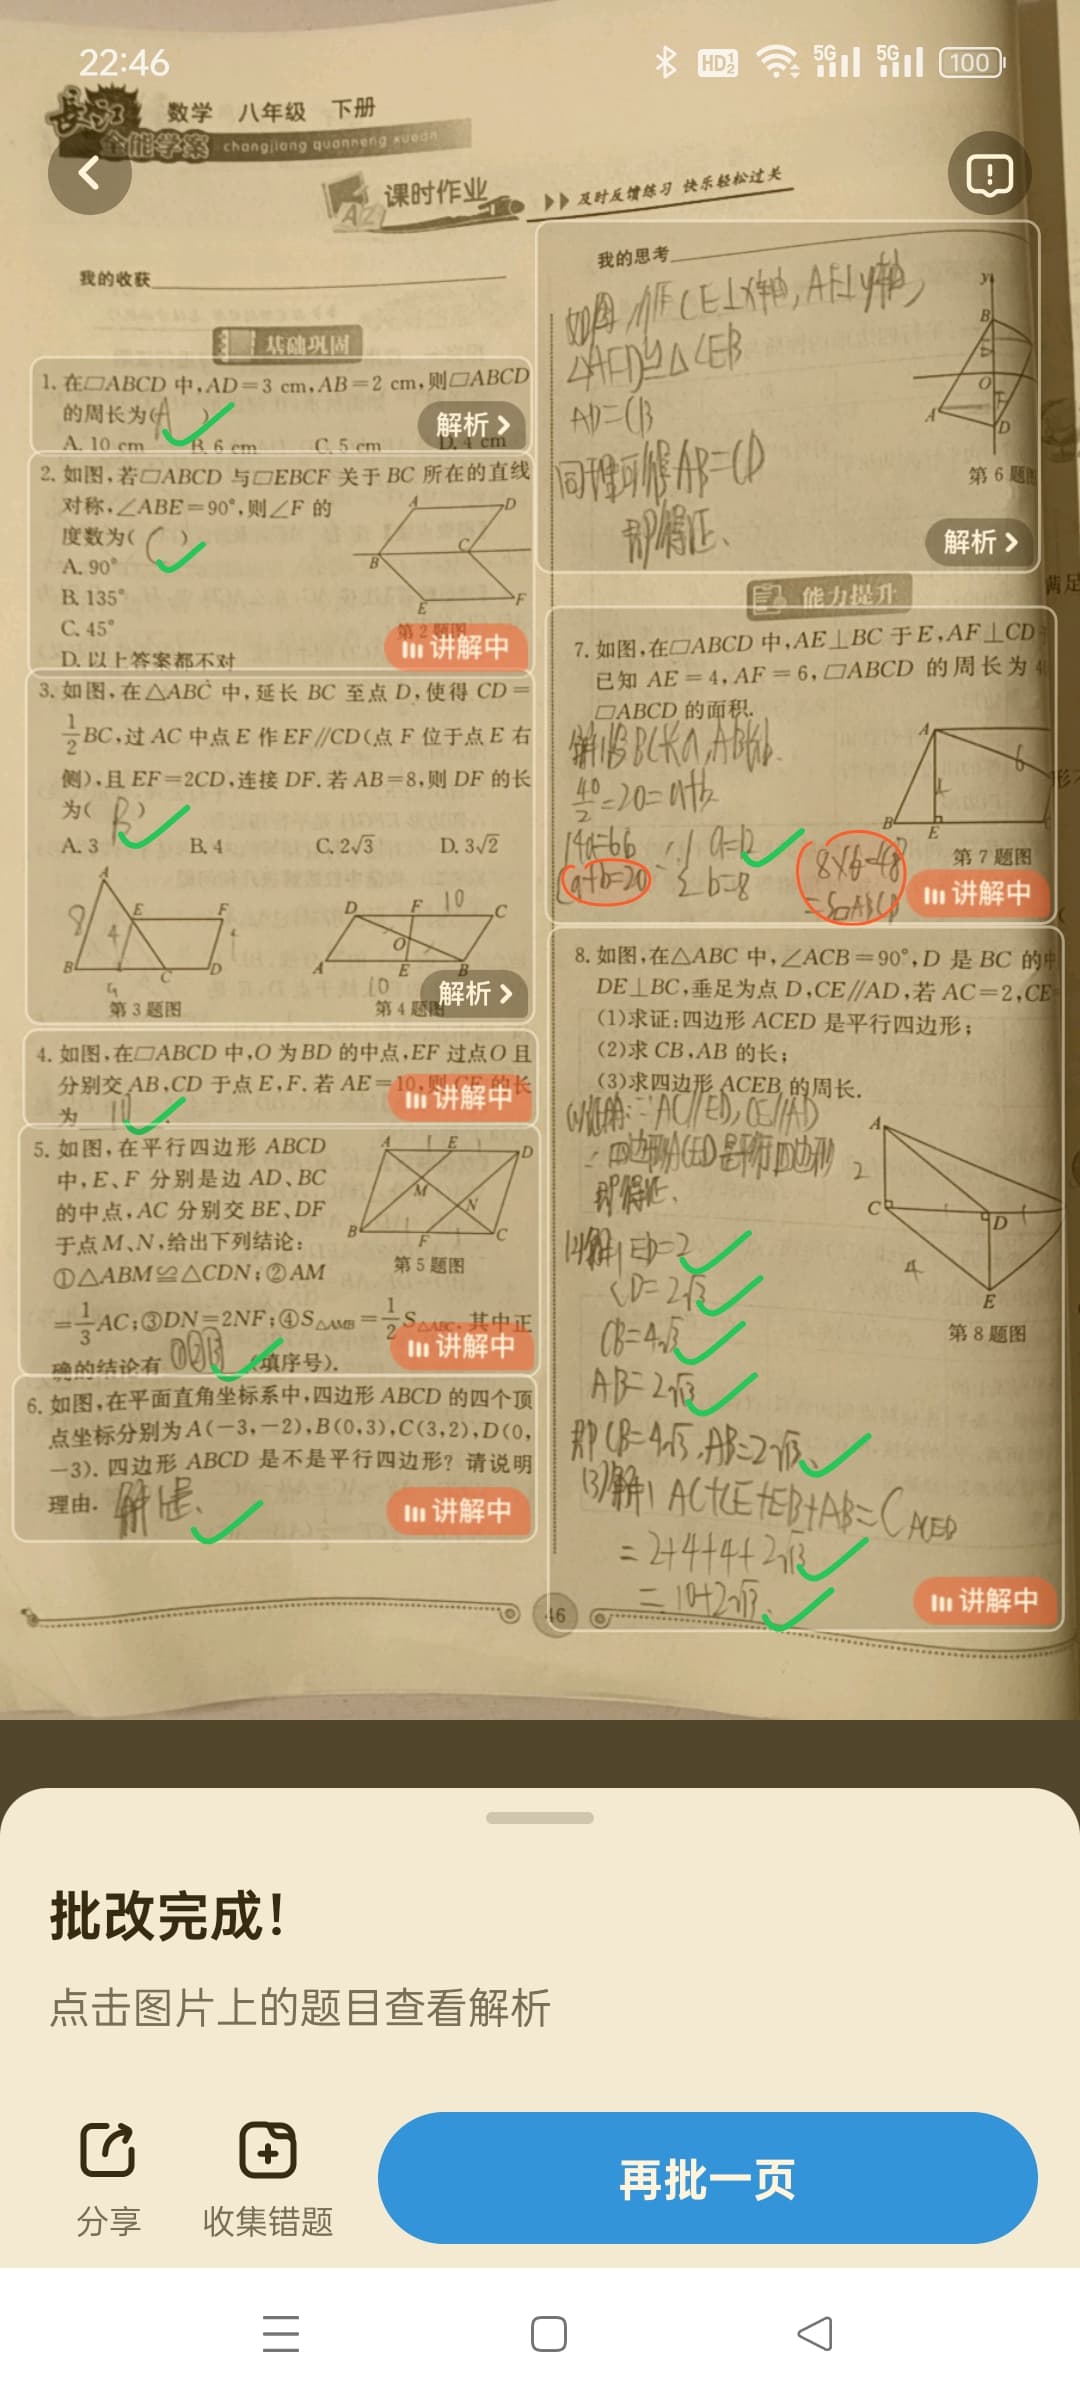 22:46
HD 1 2
5G
5G
100
長江
全能学案
数学 八年级 下册
changjiang quanneng xuean
课时作业
及时反馈练习 快乐轻松过关
我的收获
基础巩固
1. 在▱ABCD 中,AD=3 cm,AB=2 cm,则▱ABCD
的周长为( A )
A. 10 cm B. 6 cm C. 5 cm D. 4 cm
解析 >
2. 如图,若▱ABCD 与▱EBCF 关于 BC 所在的直线
对称,∠ABE=90°,则∠F 的
度数为( C )
A. 90°
B. 135°
C. 45°
D. 以上答案都不对
A D B C E F
第 2 题图
讲解中
3. 如图,在△ABC 中,延长 BC 至点 D,使得 CD=
1/2 BC,过 AC 中点 E 作 EF∥CD(点 F 位于点 E 右
侧),且 EF=2CD,连接 DF.若 AB=8,则 DF 的长
为( B )
A. 3 B. 4 C. 2√3 D. 3√2
A E F B C D
8 4
第 3 题图
D F 10 C
O
A E B
10
第 4 题图
解析 >
4. 如图,在▱ABCD 中,O 为 BD 的中点,EF 过点 O 且
分别交 AB,CD 于点 E,F. 若 AE=10,则 CF 的长
为 10 .
讲解中
5. 如图,在平行四边形 ABCD
中,E、F 分别是边 AD、BC
的中点,AC 分别交 BE、DF
于点 M、N,给出下列结论:
①△ABM≌△CDN;②AM
=1/3 AC;③DN=2NF;④S△AMB=1/2 S△ABC. 其中正
确的结论有 ①②③ (填序号).
A E D M N B F C
第 5 题图
讲解中
6. 如图,在平面直角坐标系中,四边形 ABCD 的四个顶
点坐标分别为 A(-3,-2),B(0,3),C(3,2),D(0,
-3). 四边形 ABCD 是不是平行四边形? 请说明
理由. 解:是、
讲解中
我的思考
如图,作CE⊥x轴,AF⊥y轴,
△AFD≌△CEB
AD=CB
同理可得AB=CD
即得证、
y B E O F A D
第 6 题图
解析 >
能力提升
7. 如图,在▱ABCD 中,AE⊥BC 于 E,AF⊥CD
已知 AE=4,AF=6,▱ABCD 的周长为 4
▱ABCD 的面积.
解:设BC长a,AB长b.
40/2=20=a+b
4a=6b
a+b=20
∴ a=12
b=8
8×6=48
=S▱ABCD
A 6 4 B E
第 7 题图
讲解中
8. 如图,在△ABC 中,∠ACB=90°,D 是 BC 的中
DE⊥BC,垂足为点 D,CE∥AD,若 AC=2,CE=
(1)求证:四边形 ACED 是平行四边形;
(2)求 CB,AB 的长;
(3)求四边形 ACEB 的周长.
(1)证明:∵AC∥ED,CE∥AD
∴四边形ACED是平行四边形
即得证、
(2)解:ED=2
CD=2√3
CB=4√3
AB=2√13
即CB=4√3,AB=2√13、
(3)解:AC+CE+EB+AB=C ACED
=2+4+4+2√13
=10+2√13、
A 2 C D 4 E
第 8 题图
讲解中
46
批改完成!
点击图片上的题目查看解析
分享
收集错题
再批一页